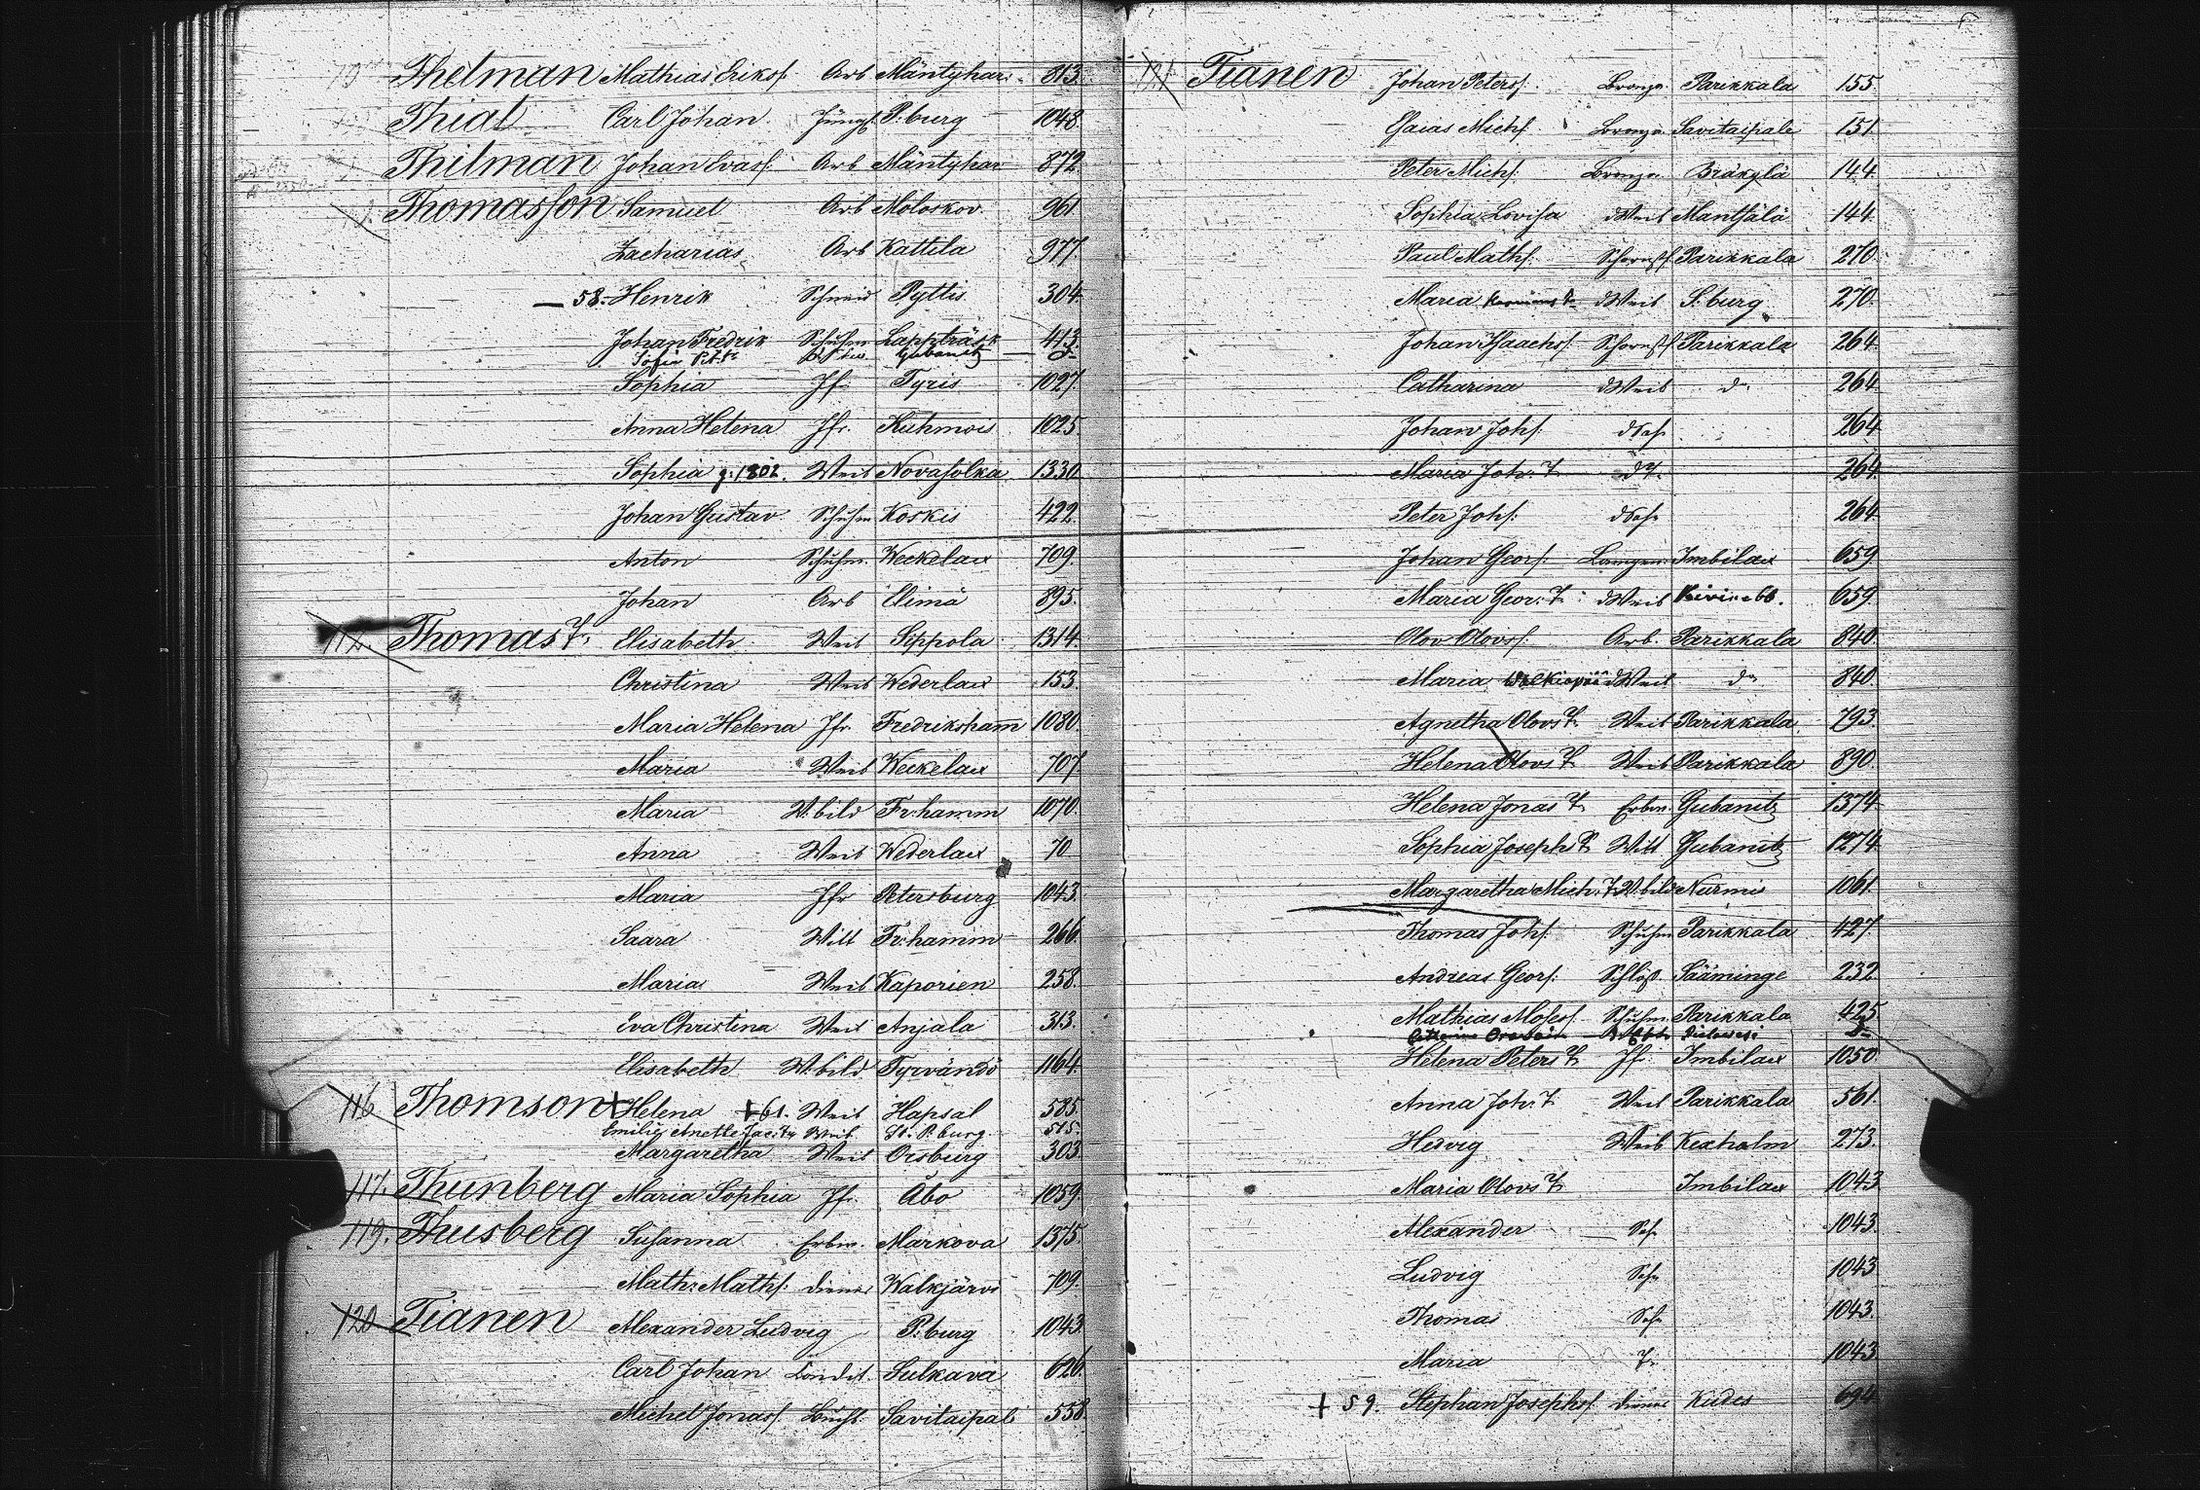 Thelman Mathias Erikss. Arb Mäntyhar. 813.
Thial Carl Johan Jüngl. P:burg 1048.
Thilman Johan Evass. Arb Mäntyhar 872.
Thomasson Samuel Arb Moloskov. 961
Zacharias Arb Kattila 977.
58. Henrik Schneid Pyttis 304.
Johan Fredrik Schuhm Lappträsk 413.
Sofia Gubanitz d:
Sophia Jf. Tyris 1027.
Anna Helena Jfr. Kuhmois 1025.
Sophia g. 1802. Weib Novasolka 1330.
Johan Gustav Schuhm Koskis 422.
Anton Schuhm. Weckelax 709.
Johan Arb Elimä 895.
112. Thomas T. Elisabeth Weib Sippola 1314.
Christina Weib Wederlax 153.
Maria Helena Jfr. Fredrikshamn 1080.
Maria Weib Weckelax 707.
Maria W.bild Fr:hamm 1070.
Anna Weib Wederlax 70
Maria Jfr Petersburg 1043.
Saara Witt Fr:hamm 266.
Maria Weib Kaporien 258.
Eva Christina Weib Anjala 313.
Elisabeth W.bild Tyrvändö 1164.
116 Thomson + Helena + 61. Weib Hapsal 585.
Emilie Anette Jac. Tr Weib St. P.burg 515.
Margaretha Weib Orsburg 303.
117. Thunberg Maria Sophia Jf. Åbo 1059.
119. Thusberg Susanna Erbw. Markova 1375.
Math: Maths: diener Walkjärvi 709.
120 Tianen Alexander Ludvig P:burg 1043.
Carl Johan Condit. Sulkava 626.
Michel Jonass. Buchb. Savitaipale 558.
121 Tianen Johan Peterss. Bronza. Parikkala 155.
Esaias Michs. Bronza. Savitaipale 151.
Peter Michs. Bronza. Bräkylä 144.
Sophia Lovisa dWeib Mantsälä 144.
Paul Maths. Schornstf Parikkala 270.
Maria dWeib S:burg 270.
Johan Isaachs. Schornstf Parikkala 264.
Catharina dWeib d: 264.
Johan Johs. dSohn 264
Maria Joh. T. dT. 264.
Peter Johs. dSohn 264.
Johan Geors. Lampen Imbilax 659.
Maria Geor: T. dWeib 659.
Olov Olovss. Arb. Parikkala 840.
Maria dWeib d: 840.
Agnetha Olovs T. Weib Parikkala 793.
Helena Olovs T. Weib Parikkala 890.
Helena Jonas T. Erbw. Gubanitz 1374
Sophia Joseph T. Witt Gubanitz 1274.
Margaretha Mich: T. W.bild Nurmis 1061.
Thomas Johs. Schuhm Parikkala 427.
Andreas Geors. Schloss. Sääminge 232.
Mathias Moses. Schuhm. Parikkala 425.
d:
Helena Peters T. Jf. Imbilax 1050
Anna Joh: T. Weib Parikkala 561.
Hedvig Weib Kexholm 273.
Maria Olovs T. Imbilax 1043
Alexander Sohn 1043.
Ludvig Sohn 1043
Thomas Sohn 1043.
Maria T. 1043.
+ 59. Stephan Josephs. diener Kides 694.